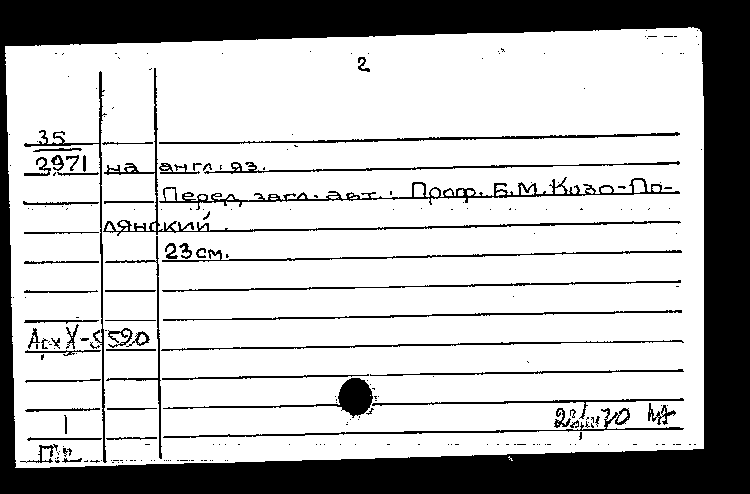 2
35
2971 на англ. яз.
Перед загл. авт.: Проф. Б.М. Козо-По-
лянский.
23 см.
Арх X-5590
1